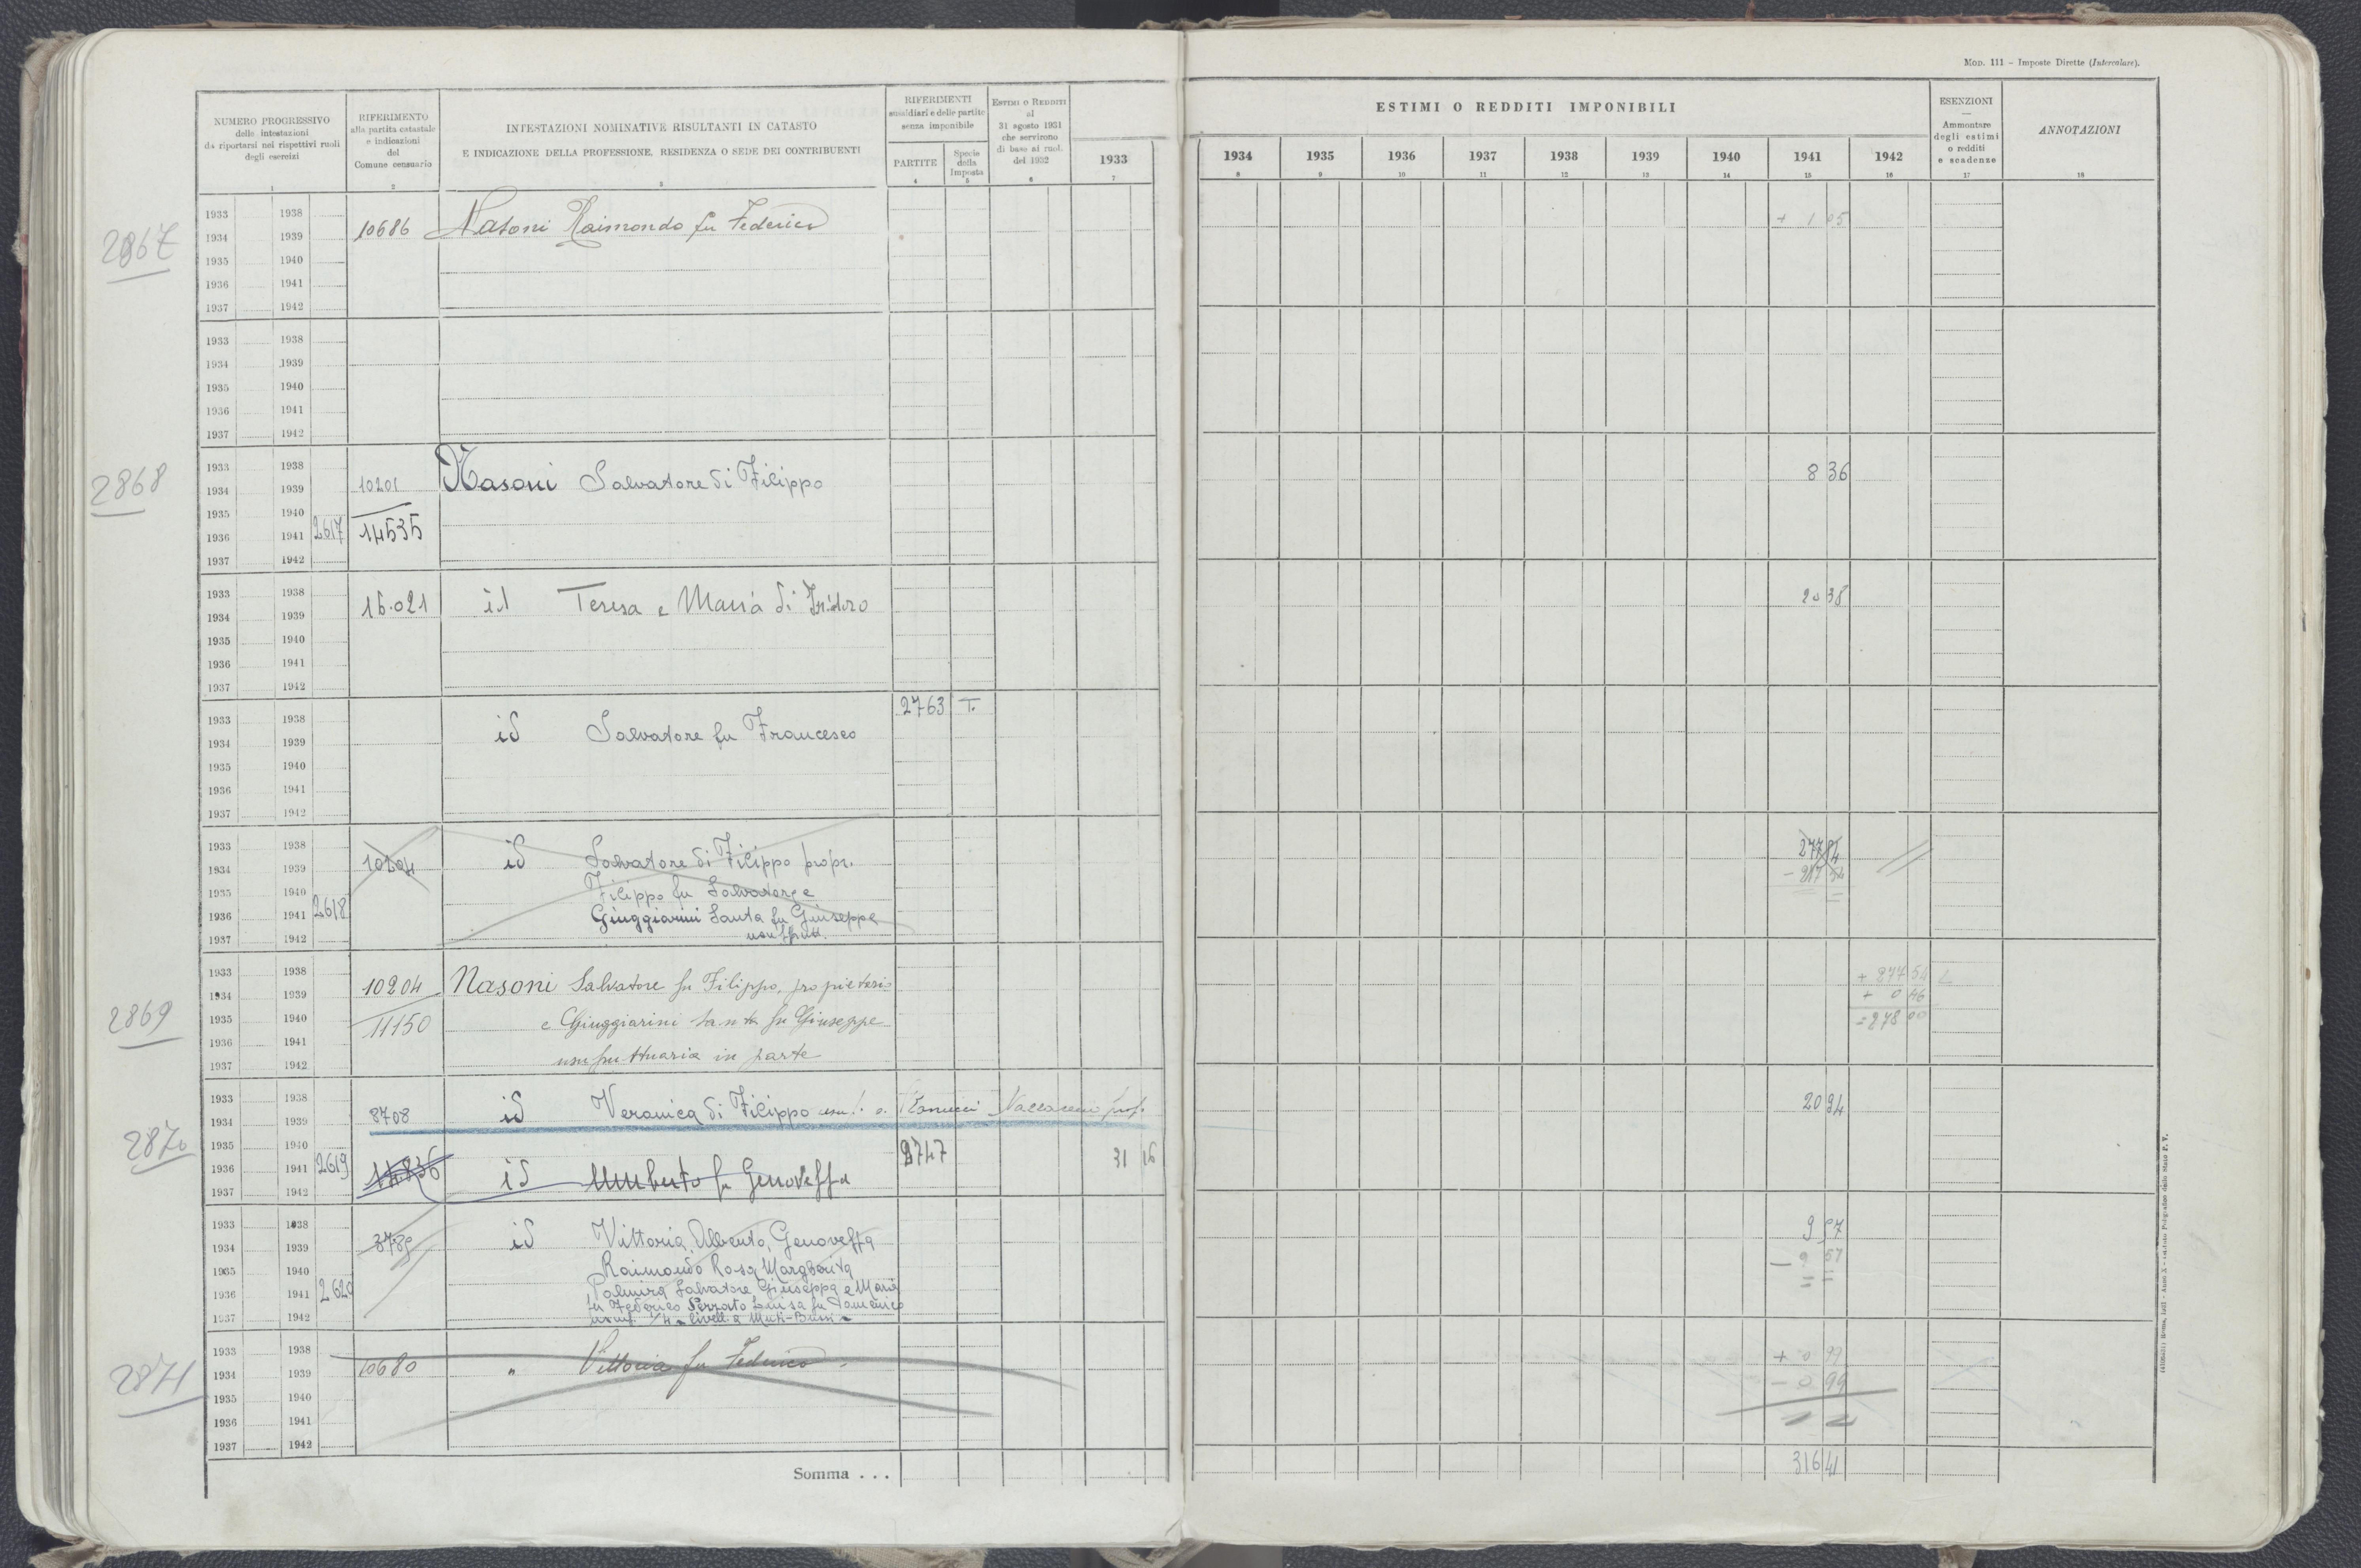 MOD. 111 – Imposte Dirette (Intercalare).
NUMERO PROGRESSIVO
delle intestazioni
da riportarsi nei rispettivi ruoli
degli esercizi
RIFERIMENTO
alla partita catastale
e indicazioni
del
Comune censuario
INTESTAZIONI NOMINATIVE RISULTANTI IN CATASTO
E INDICAZIONE DELLA PROFESSIONE, RESIDENZA O SEDE DEI CONTRIBUENTI
RIFERIMENTI
sussidiari e delle partite
senza imponibile
PARTITE
Specie
della
Imposta
ESTIMI O REDDITI
al
31 agosto 1931
che servirono
di base ai ruol.
del 1932
1933
ESTIMI O REDDITI IMPONIBILI
1934 1935 1936 1937 1938 1939 1940 1941 1942
ESENZIONI
—
Ammontare
degli estimi
o redditi
e scadenze
ANNOTAZIONI
1 2 3 4 5 6 7 8 9 10 11 12 13 14 15 16 17 18
2867
1933 1938
1934 1939
1935 1940
1936 1941
1937 1942
10686 Nasoni Raimondo fu Federico + 1 05
1933 1938
1934 1939
1935 1940
1936 1941
1937 1942
2868
1933 1938
1934 1939
1935 1940
1936 1941 2617
1937 1942
10201 Nasoni Salvatore di Filippo 8 36
14535
1933 1938
1934 1939
1935 1940
1936 1941
1937 1942
16.021 id Teresa e Maria di Isidoro 20 38
1933 1938
1934 1939
1935 1940
1936 1941
1937 1942
2763 T.
id Salvatore fu Francesco
1933 1938
1934 1939
1935 1940
1936 1941 2618
1937 1942
10204 id Salvatore di Filippo propr.
Filippo fu Salvatore e
Giuggiarini Santa fu Giuseppe
usufrutt.
277 54
- 277 54
2869
1933 1938
1934 1939
1935 1940
1936 1941
1937 1942
10204 Nasoni Salvatore fu Filippo, proprietario
11150 e Giuggiarini Santa fu Giuseppe
usufruttuaria in parte
+ 277 54
+ 0 46
= 278 00
2870
1933 1938
1934 1939
1935 1940
1936 1941 2619
1937 1942
8708 id Veronica di Filippo 20 94
14836 id Umberto fu Genoveffa 2747 31 16
1933 1938
1934 1939
1935 1940
1936 1941 2620
1937 1942
id Vittoria, Alberto, Genoveffa
Raimondo Rosa Margherita
Palmira Salvatore Giuseppa e Maria
fu Federico Luisa fu Domenico
1/4 livell. a
9 57
- 9 57
= =
2871
1933 1938
1934 1939
1935 1940
1936 1941
1937 1942
10680 " Vittoria fu Federico -
+ 0 99
- 0 99
Somma . . . 316 41